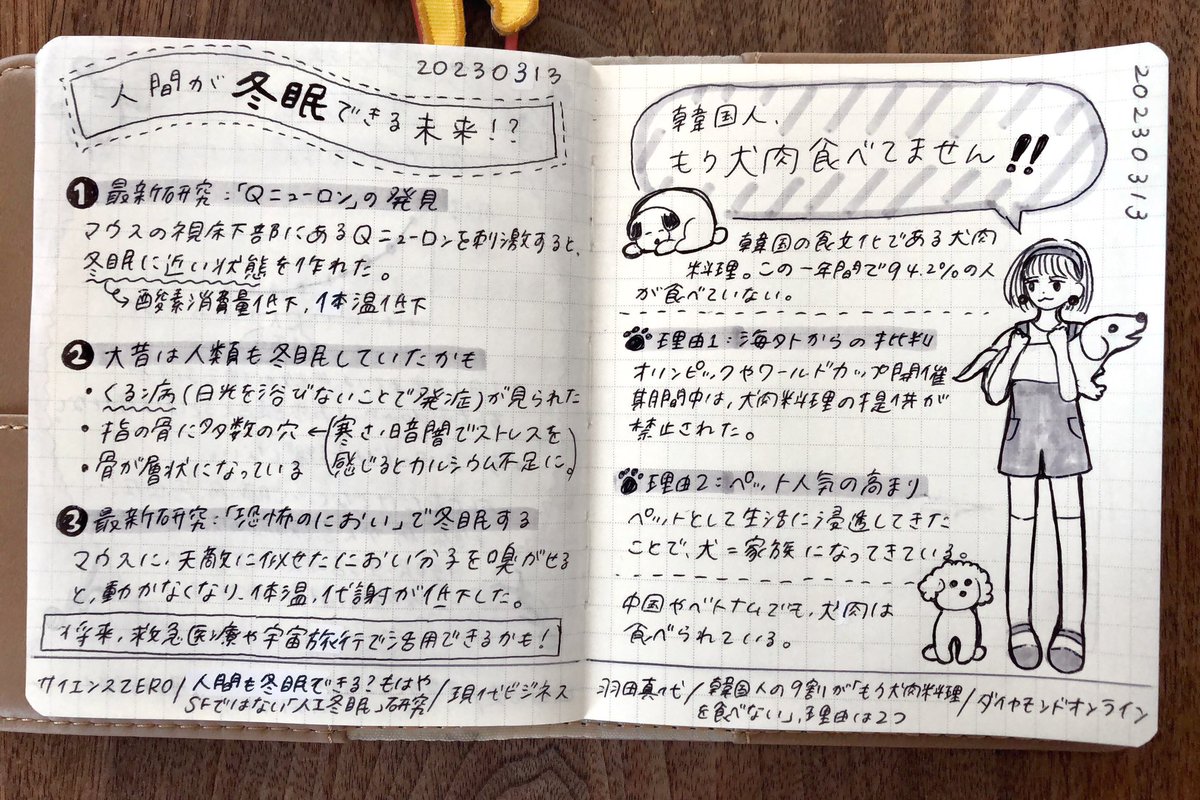 20230313
人間が冬眠できる未来!?
1 最新研究:「Qニューロン」の発見
マウスの視床下部にあるQニューロンを刺激すると、
冬眠に近い状態を作れた。
↳酸素消費量低下、体温低下
2 大昔は人類も冬眠していたかも
・くる病(日光を浴びないことで発症)が見られた
・指の骨に多数の穴 ←(寒さ、暗闇でストレスを
・骨が層状になっている 感じるとカルシウム不足に。)
3 最新研究:「恐怖のにおい」で冬眠する
マウスに、天敵に似せたにおい分子を嗅がせる
と、動かなくなり、体温、代謝が低下した。
将来、救急医療や宇宙旅行で活用できるかも!
サイエンスZERO/人間も冬眠できる?もはや
SFではない「人工冬眠」研究/現代ビジネス
20230313
韓国人、
もう犬肉食べてません!!
韓国の食文化である犬肉
料理。この一年間で94.2%の人
が食べていない。
理由1:海外からの批判
オリンピックやワールドカップ開催
期間中は、犬肉料理の提供が
禁止された。
理由2:ペット人気の高まり
ペットとして生活に浸透してきた
ことで、犬=家族になってきている。
中国やベトナムでも、犬肉は
食べられている。
羽田真代/韓国人の9割が「もう犬肉料理
を食べない」、理由は2つ/ダイヤモンドオンライン